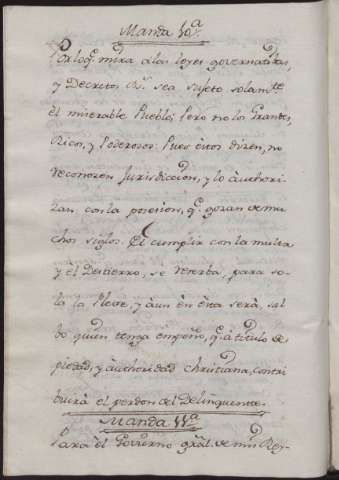 Manda 10.ª
Por lo q.ͤ mira a las leyes governatibas,
y Decretos R.ˢ sea sujeto solam.ͭͤ
èl miserable Pueblo; Pero no los Grandes,
Ricos, y Poderosos: Pues èstos dizen, no
reconozen Jurisdiccion, y lo àuthori-
zan, con la posesion, q.ͤ gozan de mu-
chos siglos. El cumplir con la multa
y el Destierro, se reserba, para so-
la la Pleve, y àun en èsta serà, sal-
bo quien tenga èmpeño, q.ͤ à titulo de
piedad, y àuthoridad Christiana, contri
buirà èl perdon del Delinquente.
Manda 11.ª
Para èl Govierno grâl. de mis Rey-